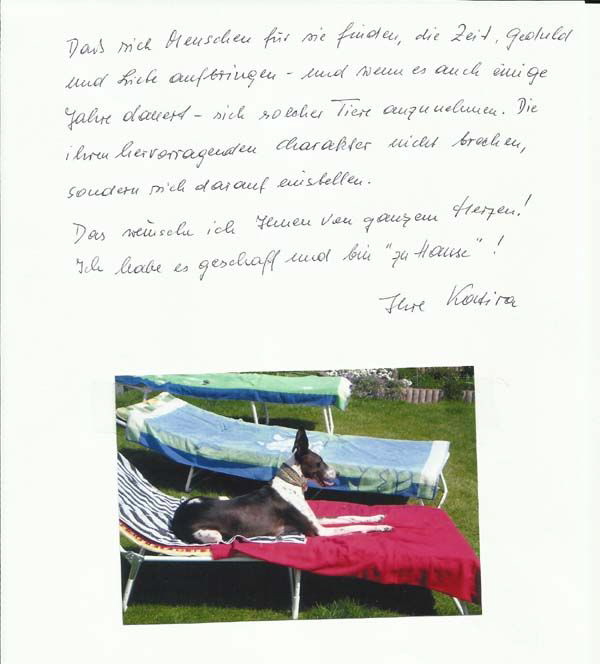 Daß sich Menschen für sie finden, die Zeit, Geduld
und Liebe aufbringen - und wenn es auch einige
Jahre dauert - sich solcher Tiere anzunehmen. Die
ihren hervorragenden Charakter nicht brechen,
sondern sich darauf einstellen.
Das wünsche ich Ihnen von ganzem Herzen!
Ich habe es geschafft und bin "zu Hause"!
Ihre